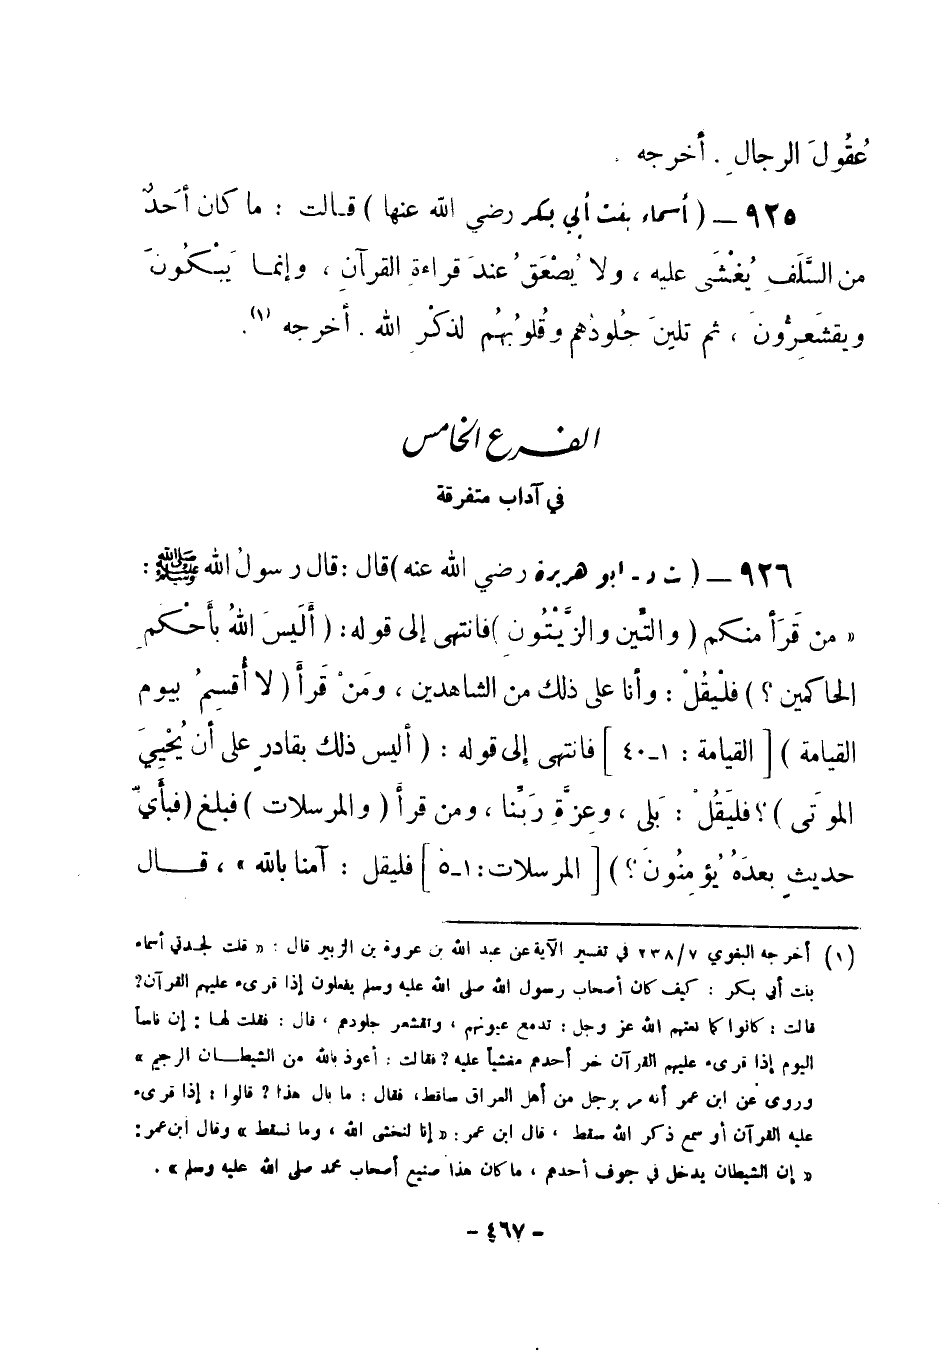 عُقُولَ الرجالِ . أخرجه .
٩٢٥ – ( أسماء بنت أبي بكر رضي الله عنها ) قالت : ما كان أحَدٌ
من السَّلَفِ يُغْشَى عليه ، ولا يُصْعَقُ عندَ قراءةِ القرآنِ ، وإنما يَبْكُونَ
ويقشَعِرُّونَ ، ثم تلينَ جُلودُهم وقُلوبُهُم لذكْرِ الله . أخرجه (١).
الفرع الخامس
في آداب متفرقة
٩٢٦ – ( ت د - ابو هريرة رضي الله عنه )قال :قال رسولُ الله ﷺ :
« من قَرَأَ منكم ( والتِّينِ والزَّيْتُونِ )فانتهى إلى قوله: ( أَلَيسَ اللهُ بأَحْكمِ
الحاكمين ؟ ) فلْيقُلْ : وأنا على ذلك من الشاهدين ، ومَنْ قَرأَ ( لا أُقسِمُ بيوم
القيامة ) [ القيامة : ١-٤٠ ] فانتهى إلى قوله : ( أليس ذلك بقادرٍ على أن يُحْيِيَ
الموتَى )؟ فليَقُلْ : بَلى ، وعِزَّةِ رَبِّنا ، ومن قرأَ ( والمرسلات ) فبلغ (فبأَيِّ
حديثٍ بعدَهُ يُؤمِنُونَ؟ ) [ المرسلات: ١-٥ ] فليقل : آمنا بالله » ، قال
(١) أخرجه البغوي ٢٣٨/٧ في تفسير الآية عن عبد الله بن عروة بن الزبير قال : « قلت لجدتي أسماء
بنت أبي بكر : كيف كان أصحاب رسول الله صلى الله عليه وسلم يفعلون إذا قرىء عليهم القرآن؟
قالت : كانوا كما نعتهم الله عز وجل : تدمع عيونهم ، وتقشعر جلودهم ، قال : فقلت لها : إن ناساً
اليوم إذا قرىء عليهم القرآن خر أحدهم مغشياً عليه ? فقالت : أعوذ بالله من الشيطان الرجيم »
وروي عن ابن عمر أنه مر برجل من أهل العراق ساقط، فقال : ما بال هذا ? قالوا : إذا قرىء
عليه القرآن أو سمع ذكر الله سقط ، قال ابن عمر : « إنا لنخشى الله ، وما نسقط » وقال ابن عمر:
« إن الشيطان يدخل في جوف أحدهم ، ما كان هذا صنيع أصحاب محمد صلى الله عليه وسلم » .
- ٤٦٧ -